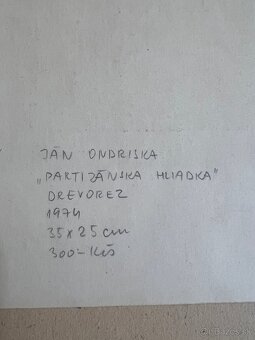 JÁN ONDRISKA
„PARTIZÁNSKA HLIADKA"
DREVOREZ
1974
35 x 25 cm
300,- Kčs